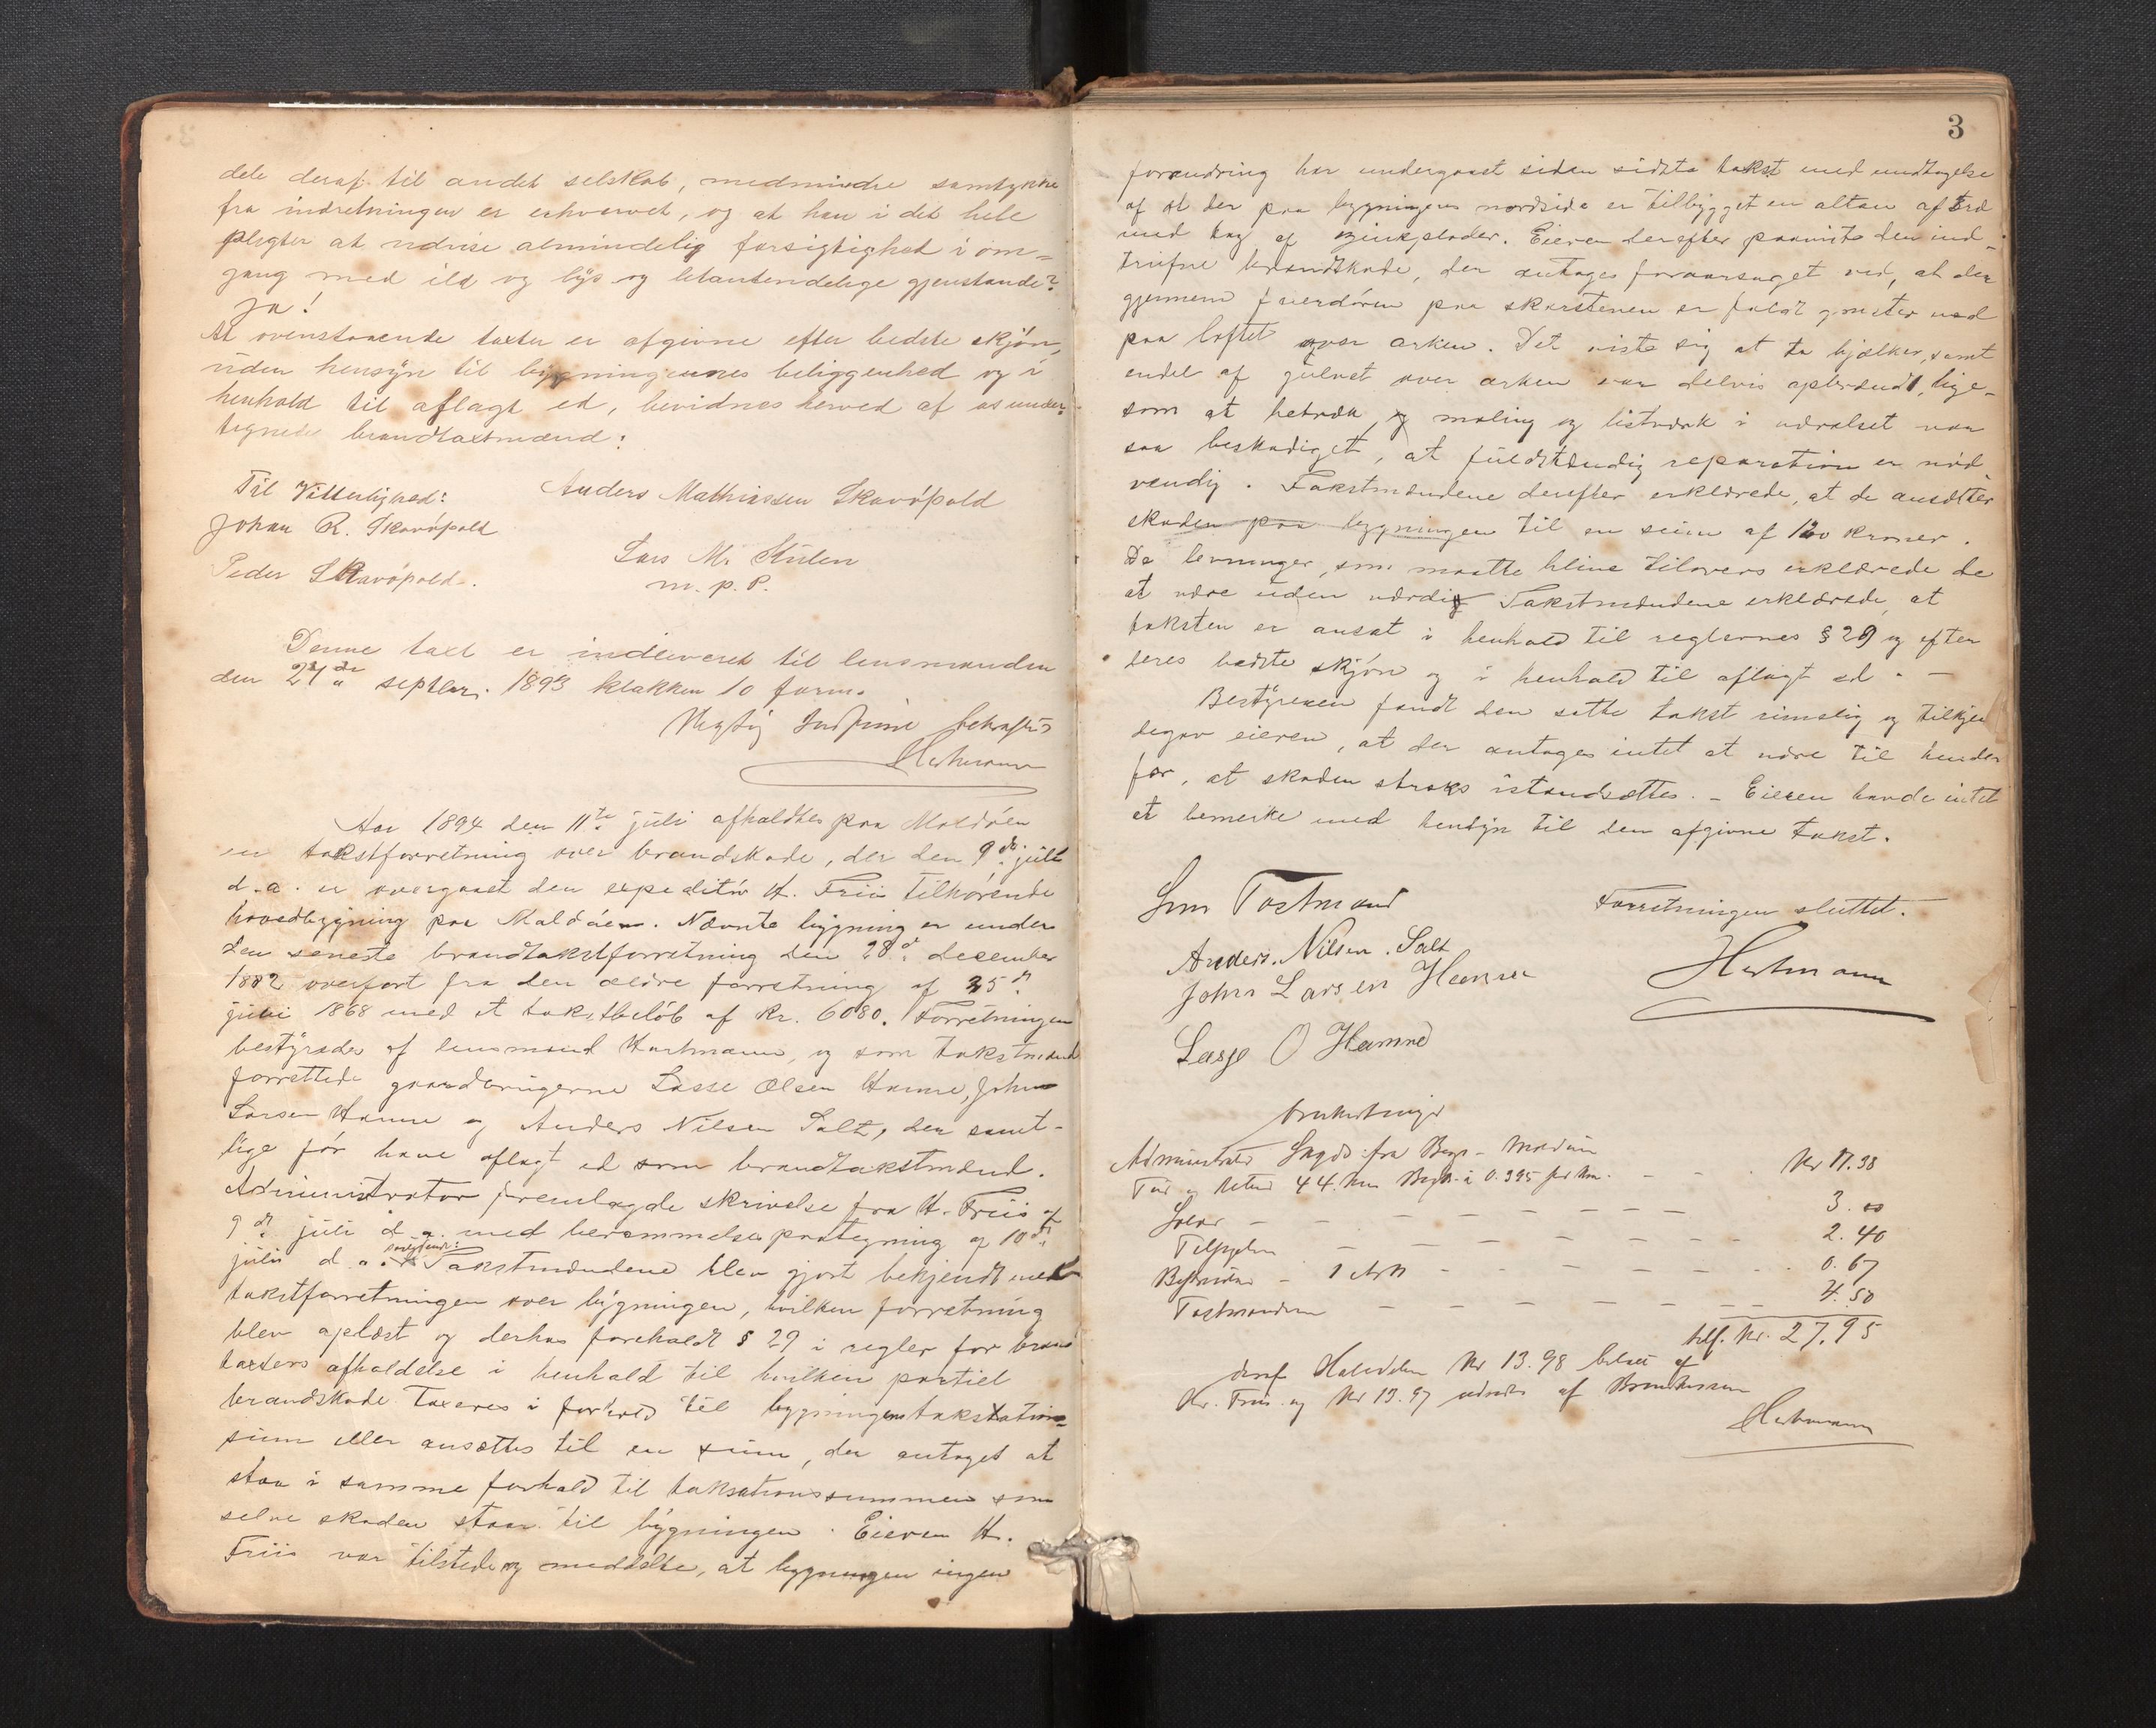 dele deraf til andet selskab, medmindre samtykke
fra indretningen er erhvervet, og at han i det hele
pligter at udvise almindelig forsigtighed i om-
gang med ild og lys og letantendelige gjenstande?
Ja!
At ovenstaaende taxter er afgivne efter bedste skjøn,
uden hensyn til bygningernes beliggenhed og i
henhold til aflagt ed, bevidnes herved af os under-
tegnede brandtaxtmænd:
Til Vitterlighed: Anders Mathiassen Skavøpold
Johan R. Skavøpold
Lars M. Stulen
Peder Skavøpold. m. p. P.
Denne taxt er indleveret til lensmanden
den 27de septbr. 1893 klokken 10 form.
bekræftes
Hartmann
Aar 1894 den 11te juli afholdtes paa Moldøen
en takstforretning over brandskade, der den 9de juli
d. a. er overgaaet den expeditør H. Friis tilhørende
hovedbygning paa Moldøen. Nævnte bygning er under
den seneste brandtakstforretning den 28de december
1882 overført fra den ældre forretning af 25de
juni 1868 med et takstbeløb af kr. 6080. Forretningen
bestyredes af lensmand Hartmann, og som takstmænd
forrettede gaardbrugerne Lasse Olsen Hamre, John
Larsen Hamre og Anders Nilsen Salt, der samt-
lige før have aflagt ed som brandtakstmænd.
Administrator fremlagde skrivelse fra H. Friis af
9de juli d. a. med berammelsespaategning af 10de
juli d. a. Takstmændene blev gjort bekjendt med
takstforretningen over bygningen, hvilken forretning
blev oplæst og derhos foreholdt § 29 i regler for brand
taxters afholdelse i henhold til hvilken partiel
brandskade taxeres i forhold til bygningens takstations-
sum eller ansættes til en sum, der antaget at
staa i samme forhold til taksationssummen som
selve skaden staar til bygningen. Eieren H.
Friis var tilstede og meddelte, at bygningen ingen
3
forandring har undergaaet siden sidste takst med undtagelse
af at der paa bygningens nordside er tilbygget en altan af træ
med tag af zinkplader. Eieren derefter paaviste den ind-
trufne brandskade, der antages foraarsaget ved, at der
gjennem fuerdøren paa skorstenen er faldt gnister ned
paa loftet over arken. Det viste sig at to bjælker, samt
endel af gulvet over arken var delvis opbrændt, lige-
som at betræk og maling og listværk i værelset var
saa beskadiget, at fuldstændig reparation er nød-
vendig. Takstmændene derefter erklærede, at de ansætter
skaden paa bygningen til en sum af 120 kroner.
De levninger, som maatte blive tilovers erklærede de
at være uden værdi. Takstmændene erklærede, at
taksten er ansat i henhold til reglernes § 29 og efter
deres bedste skjøn og i henhold til aflagt ed. –
Bestyreren fandt den satte takst rimelig og tilkjen
degav eieren, at der antages intet at være til hinder
for, at skaden straks istandsættes. – Eieren havde intet
at bemerke med hensyn til den afgivne takst.
Som Taxtmænd Forretningen sluttet.
Anders. Nilsen. Salt
Hartmann
John Larsen Hamre
Lasse O Hamre
Omkostninger
Administrators Skyds fra
Tur og retur 44. km à 0.395 pr km. – – – Kr 17.38
– – – – – – – – 3. 00
– – – – – – – 2. 40
– – – – – – 0. 67
Taxtmændene – – – – – – – 4. 50
tils. Kr. 27,95
deraf Halvdelen Kr 13.98 betalt af
Hr. Friis og Kr 13.97 udredes af
Hartmann